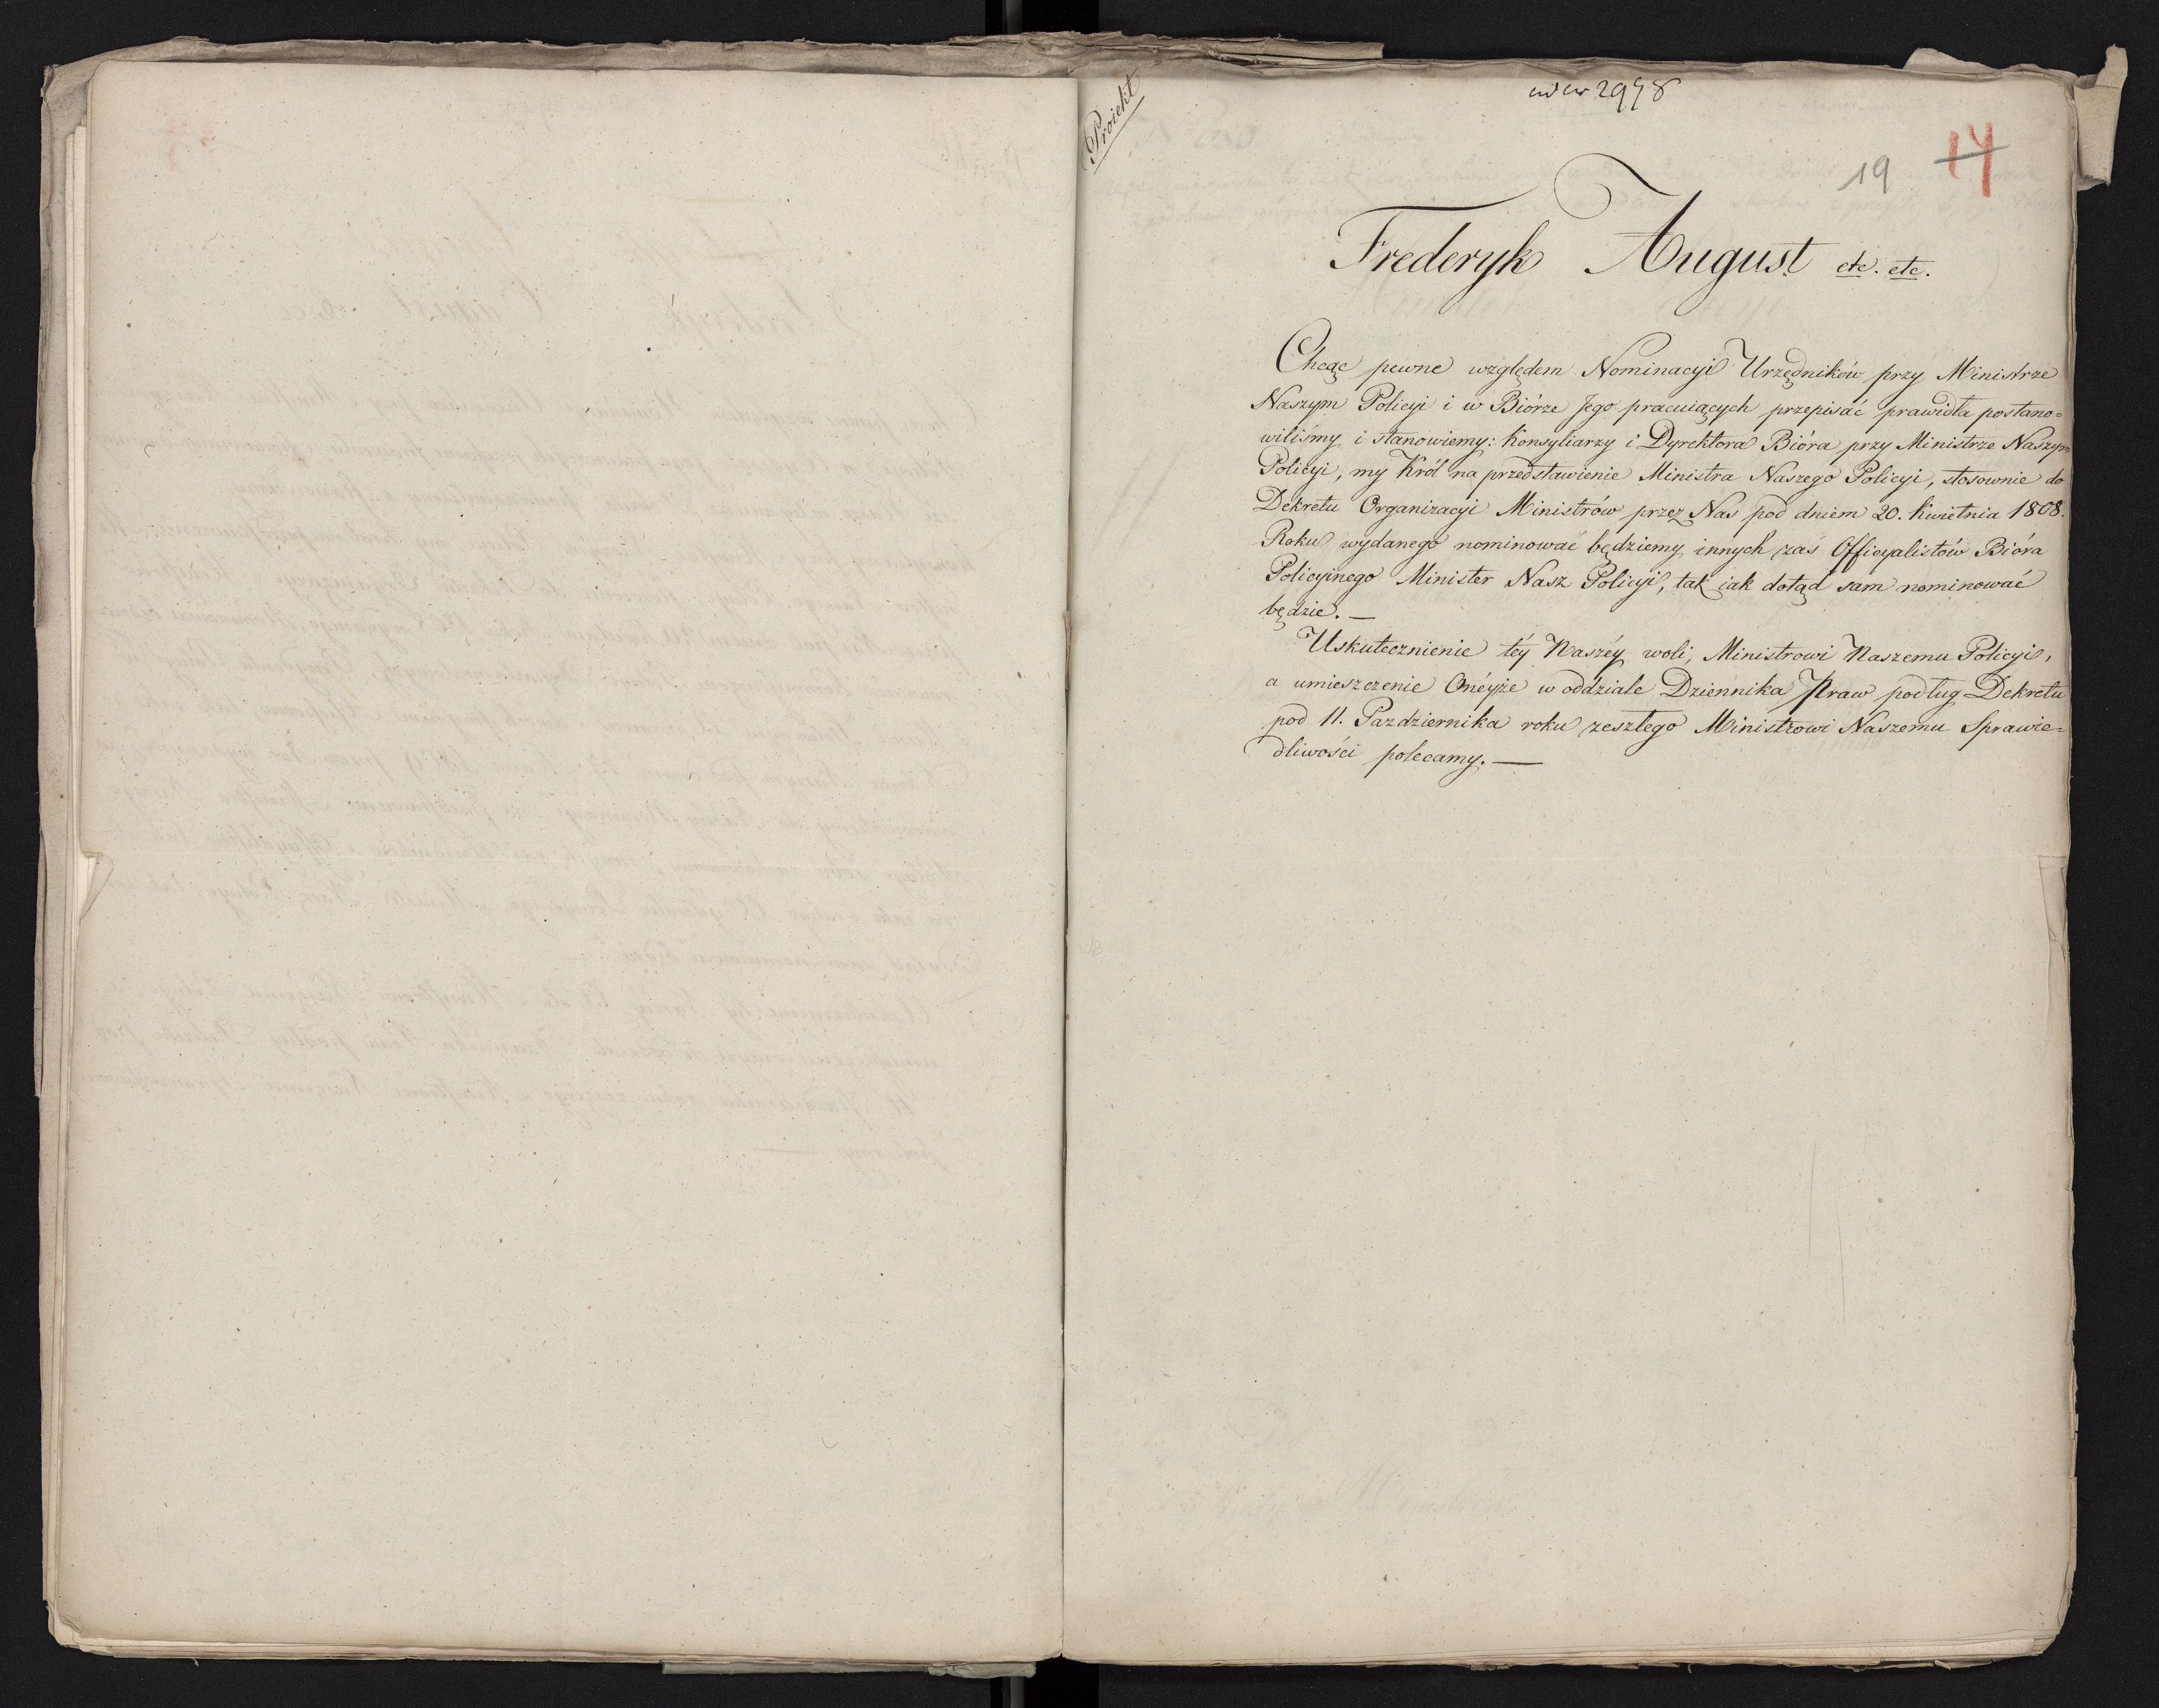 Proiekt
2978
19 14
Frederyk August etc. etc.
Chcąc pewne względem Nominacyi Urzędników przy Ministrze
Naszym Policyi i w Biórze Jego pracuiących przepisać prawidła postano=
wiliśmy i stanowiemy: Konsyliarzy i Dyrektora Bióra przy Ministrze Naszym
Policyi, my Król na przedstawienie Ministra Naszego Policyi, stosownie do
Dekretu Organizacyi Ministrów przez Nas pod dniem 20. Kwietnia 1808.
Roku wydanego nominować będziemy innych zaś Officyalistów Bióra
Policyinego Minister Nasz Policyi, tak iak dotąd sam nominować
będzie. —
Uskutecznienie téy Naszéy woli, Ministrowi Naszemu Policyi,
a umieszczenie Onéyże w oddziale Dziennika Praw podług Dekretu
pod 11. Pazdziernika roku zeszłego Ministrowi Naszemu Sprawie=
dliwości polecamy. —